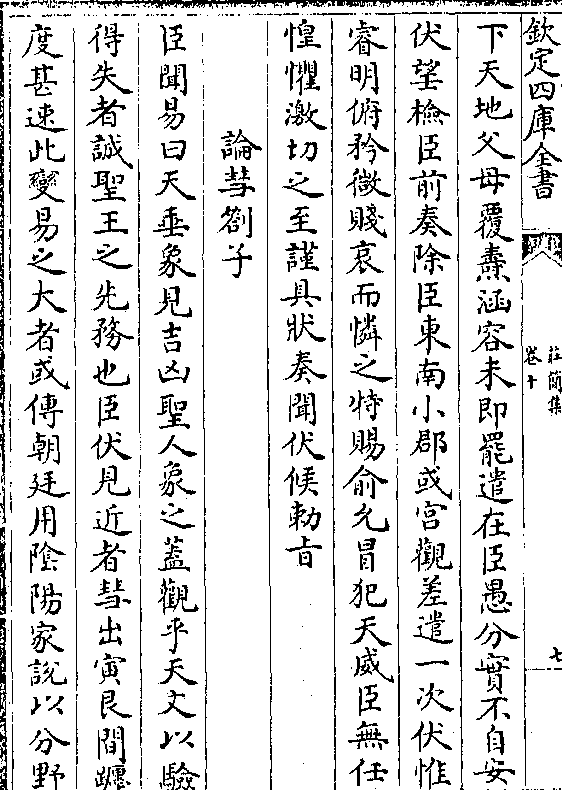 欽定四庫全書
莊簡集
卷十
七
下天地父母覆燾涵容未即罷遣在臣愚分實不自安
伏望檢臣前奏除臣東南小郡或宮觀差遣一次伏惟
睿明俯矜微賤哀而憐之特賜俞允冒犯天威臣無任
惶懼激切之至謹具狀奏聞伏候勅旨
論彗劄子
臣聞易曰天垂象見吉凶聖人象之蓋觀乎天文以驗
得失者誠聖王之先務也臣伏見近者彗出寅艮間躔
度甚速此變易之大者或傳朝廷用陰陽家説以分野